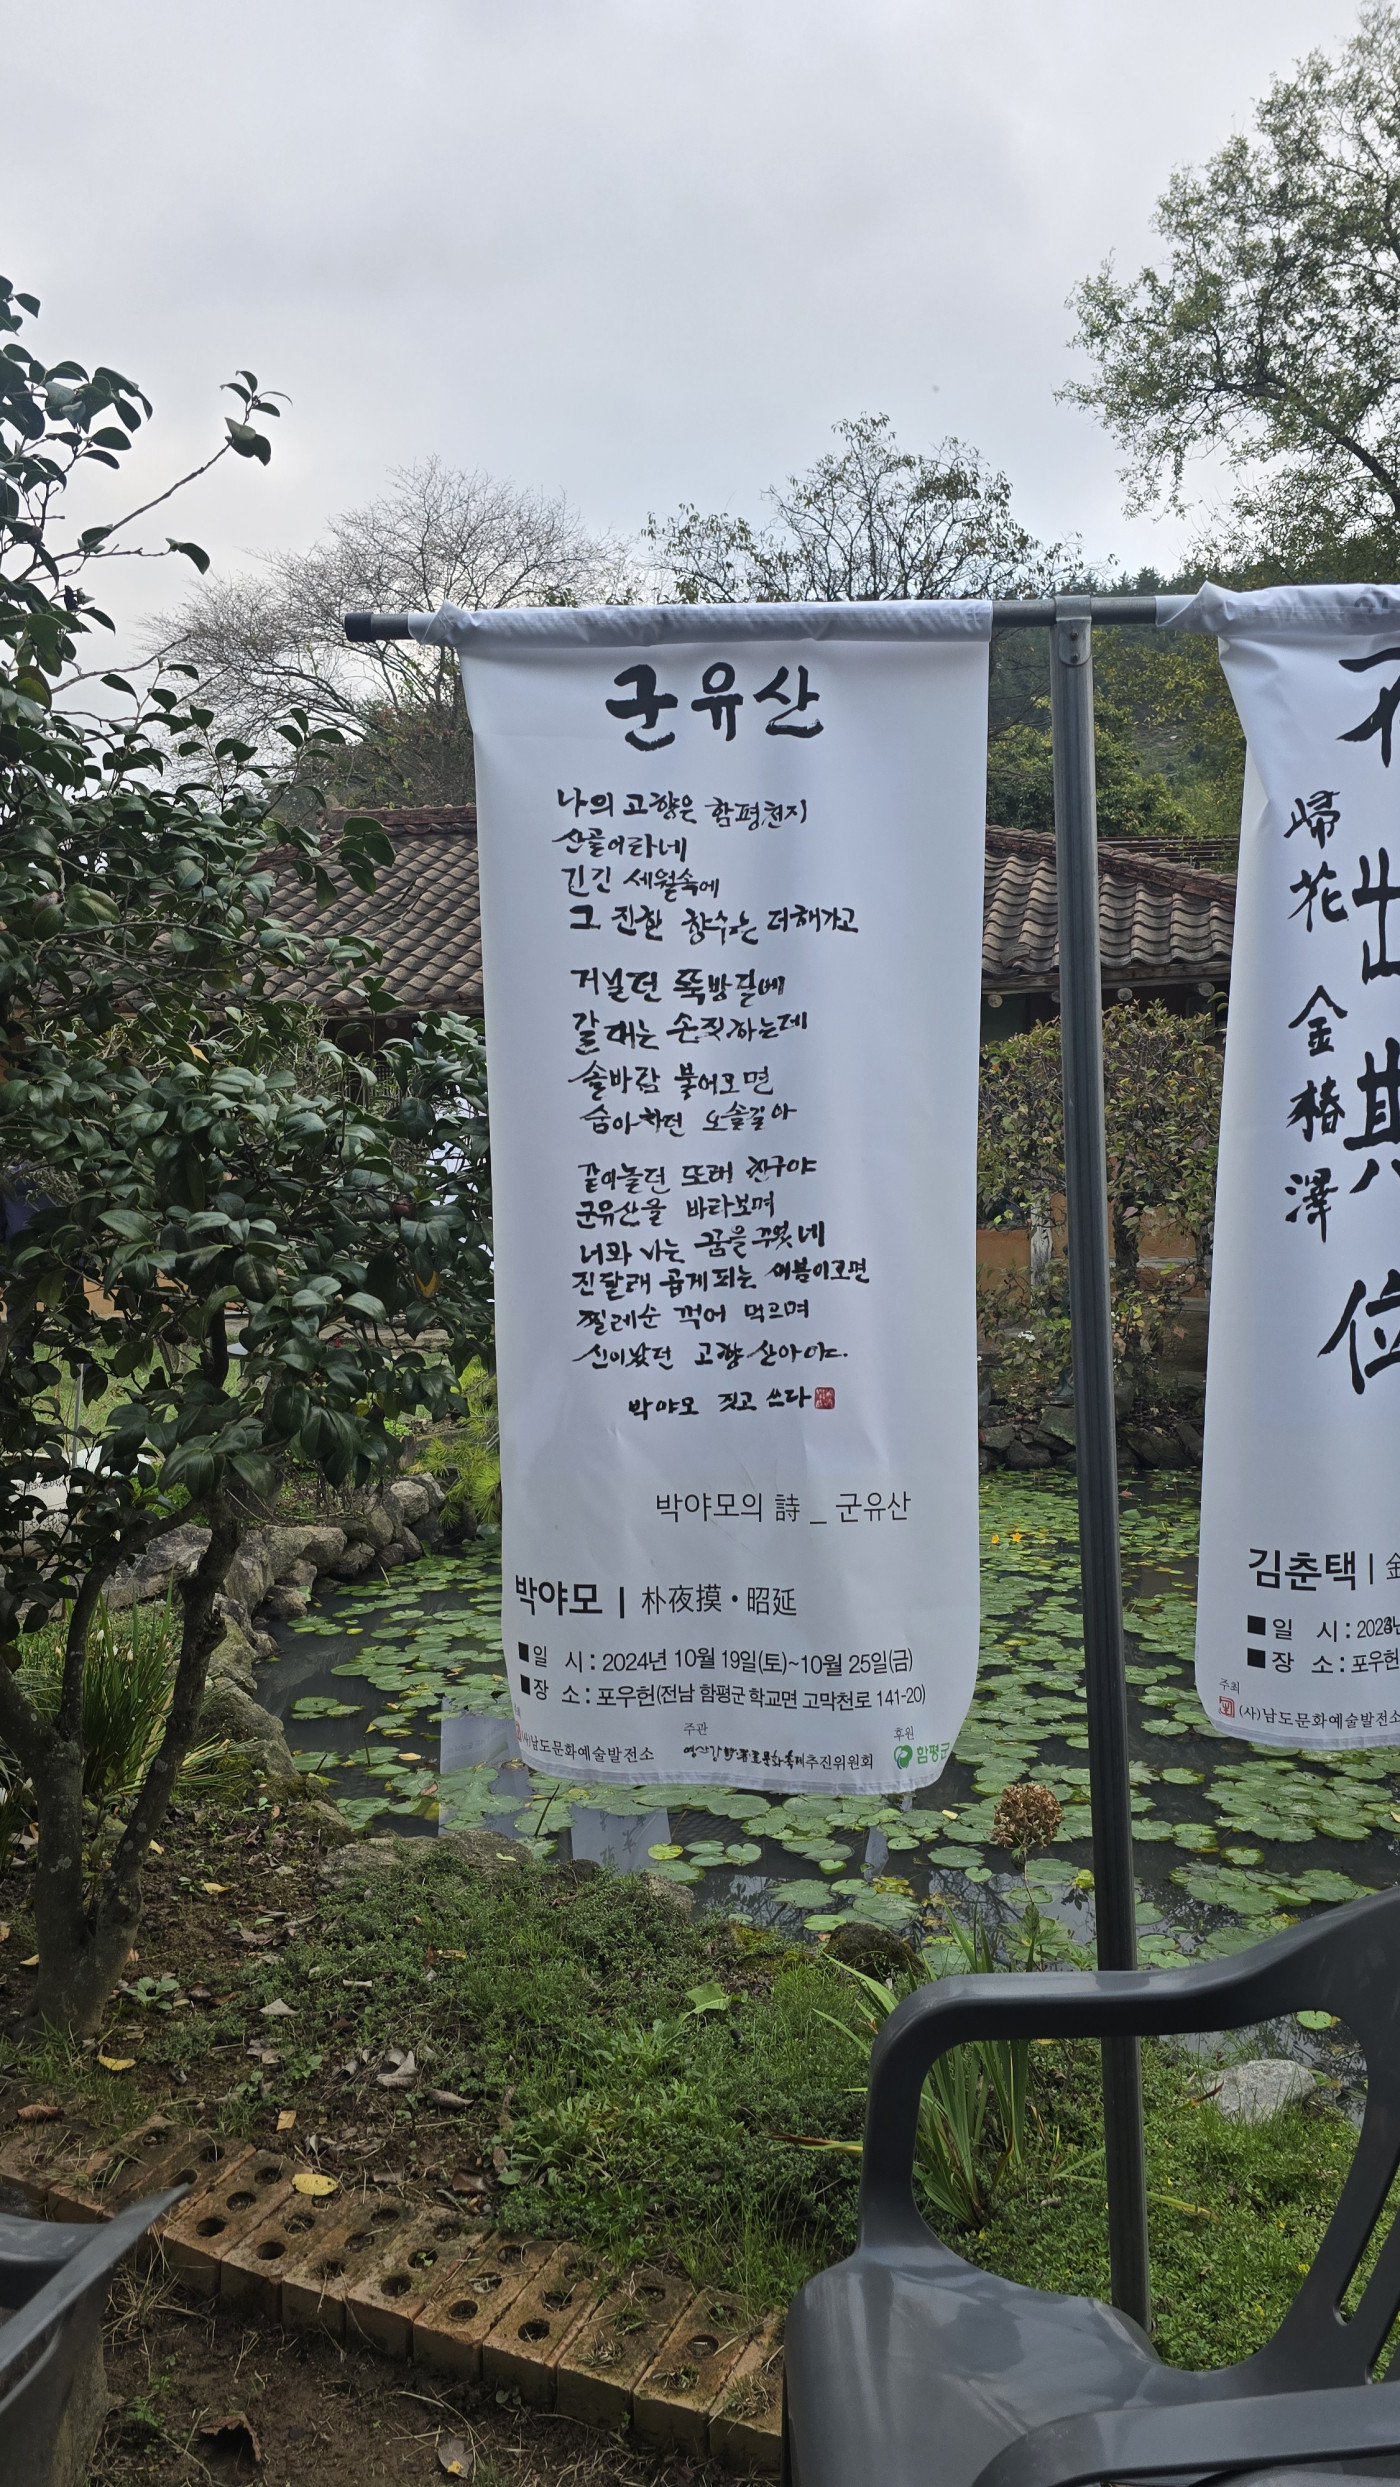 군유산
나의 고향은 함평천지
산골이라네
긴긴 세월속에
그 진한 향수는 더해가고
거닐던 뚝방길에
갈대는 손짓하는데
솔바람 불어오면
숨이차던 오솔길아
같이놀던 또래 친구야
군유산을 바라보며
너와 나는 꿈을 꾸웠네
진달래 곱게피는 새봄이오면
찔레순 꺽어 먹으며
신이났던 고향산아야.
박야모 짓고 쓰다
박야모의 詩 _ 군유산
박야모 | 朴夜摸·昭延
■일 시 : 2024년 10월 19일(토)~10월 25일(금)
■장 소 : 포우헌(전남 함평군 학교면 고막천로 141-20)
(사)남도문화예술발전소
주관
추진위원회
후원
함평군
出其位
歸花 金椿澤
김춘택 |
■일 시 :
■장 소 : 포우헌
주최
(사)남도문화예술발전소